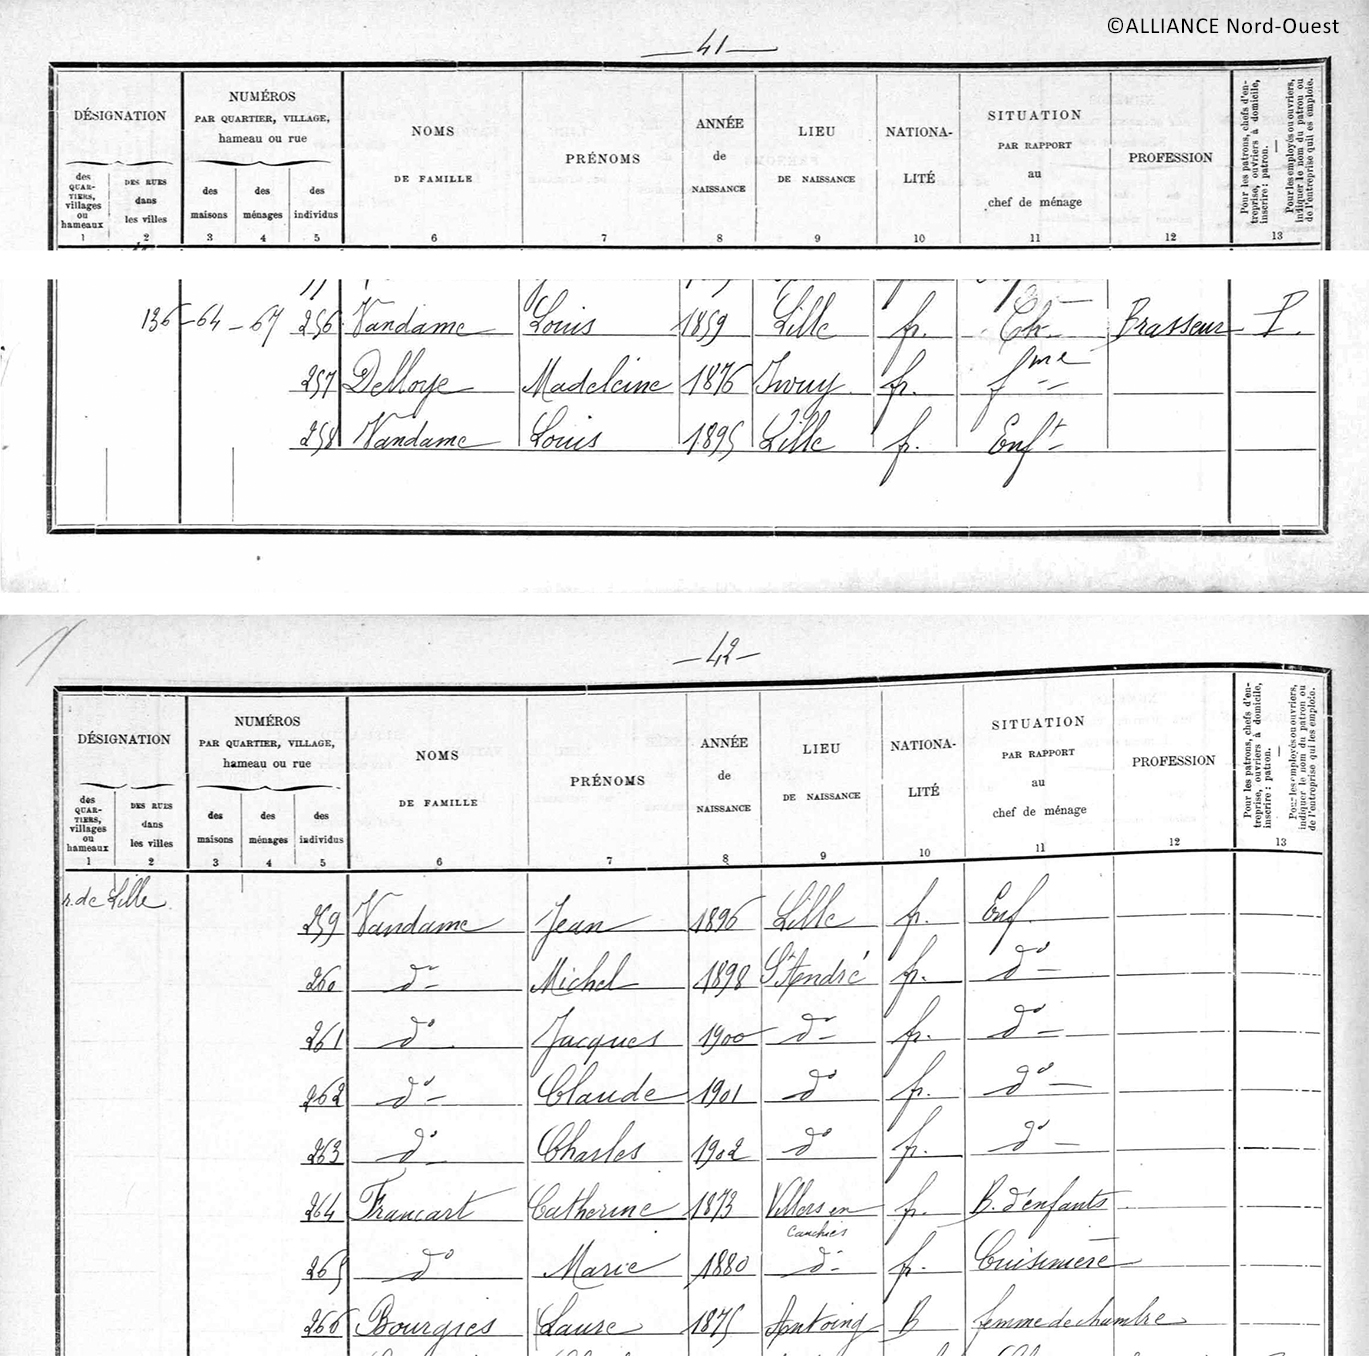 ©ALLIANCE Nord-Ouest
—41—
DÉSIGNATION
NUMÉROS
PAR QUARTIER, VILLAGE,
hameau ou rue
NOMS
DE FAMILLE
PRÉNOMS
ANNÉE
de
NAISSANCE
LIEU
DE NAISSANCE
NATIONA-
LITÉ
SITUATION
PAR RAPPORT
au
chef de ménage
PROFESSION
Pour les patrons, chefs d'en-
treprise, ouvriers à domicile,
inscrire : patron.
—
Pour les employés ou ouvriers,
indiquer le nom du patron ou
de l'entreprise qui les emploie.
des
QUAR-
TIERS,
villages
ou
hameaux
DES RUES
dans
les villes
des
maisons
des
ménages
des
individus
1 2 3 4 5 6 7 8 9 10 11 12 13
136 – 64 – 67 256 Vandame Louis 1859 Lille fr. Ch. Brasseur P.
257 Delloye Madeleine 1876 Iwuy fr. fme
258 Vandame Louis 1895 Lille fr. Enft
—42—
DÉSIGNATION
NUMÉROS
PAR QUARTIER, VILLAGE,
hameau ou rue
NOMS
DE FAMILLE
PRÉNOMS
ANNÉE
de
NAISSANCE
LIEU
DE NAISSANCE
NATIONA-
LITÉ
SITUATION
PAR RAPPORT
au
chef de ménage
PROFESSION
Pour les patrons, chefs d'en-
treprise, ouvriers à domicile,
inscrire : patron.
—
Pour les employés ou ouvriers,
indiquer le nom du patron ou
de l'entreprise qui les emploie.
des
QUAR-
TIERS,
villages
ou
hameaux
DES RUES
dans
les villes
des
maisons
des
ménages
des
individus
1 2 3 4 5 6 7 8 9 10 11 12 13
r. de Lille
259 Vandame Jean 1896 Lille fr. Enf.
260 do Michel 1898 St André fr. do
261 do Jacques 1900 do fr. do
262 do Claude 1901 do fr. do
263 do Charles 1902 do fr. do
264 Francart Catherine 1873 Villers en fr. B. d'enfants
Cauchies
265 do Marie 1880 do fr. Cuisinière
266 Bourgies Laure 1875 Antoing B femme de chambre